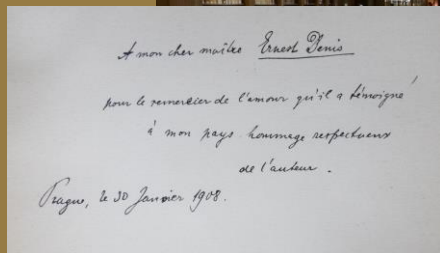 A mon cher maître Ernest Denis
pour le remercier de l'amour qu'il a témoigné
à mon pays hommage respectueux
de l'auteur.
Prague, le 30 Janvier 1908.